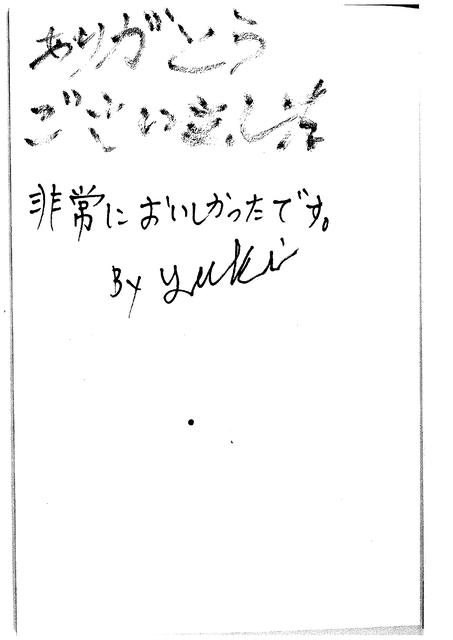 ありがとう
ございました
非常においしかったです。
By yuki